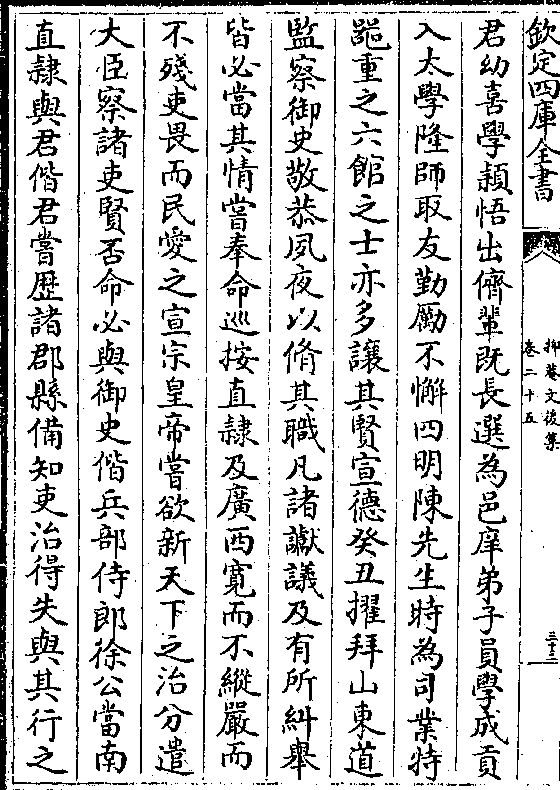 欽定四庫全書
抑菴文後集
卷二十五
三十三
君幼喜學穎悟出儕輩既長選為邑庠弟子員學成貢
入太學隆師取友勤勵不懈四明陳先生時為司業特
器重之六館之士亦多讓其賢宣德癸丑擢拜山東道
監察御史敬恭夙夜以脩其職凡諸讞議及有所糾舉
皆必當其情嘗奉命巡按直隷及廣西寛而不縱嚴而
不殘吏畏而民愛之宣宗皇帝嘗欲新天下之治分遣
大臣察諸吏賢否命必與御史偕兵部侍郎徐公當南
直隷與君偕君嘗歴諸郡縣備知吏治得失與其行之